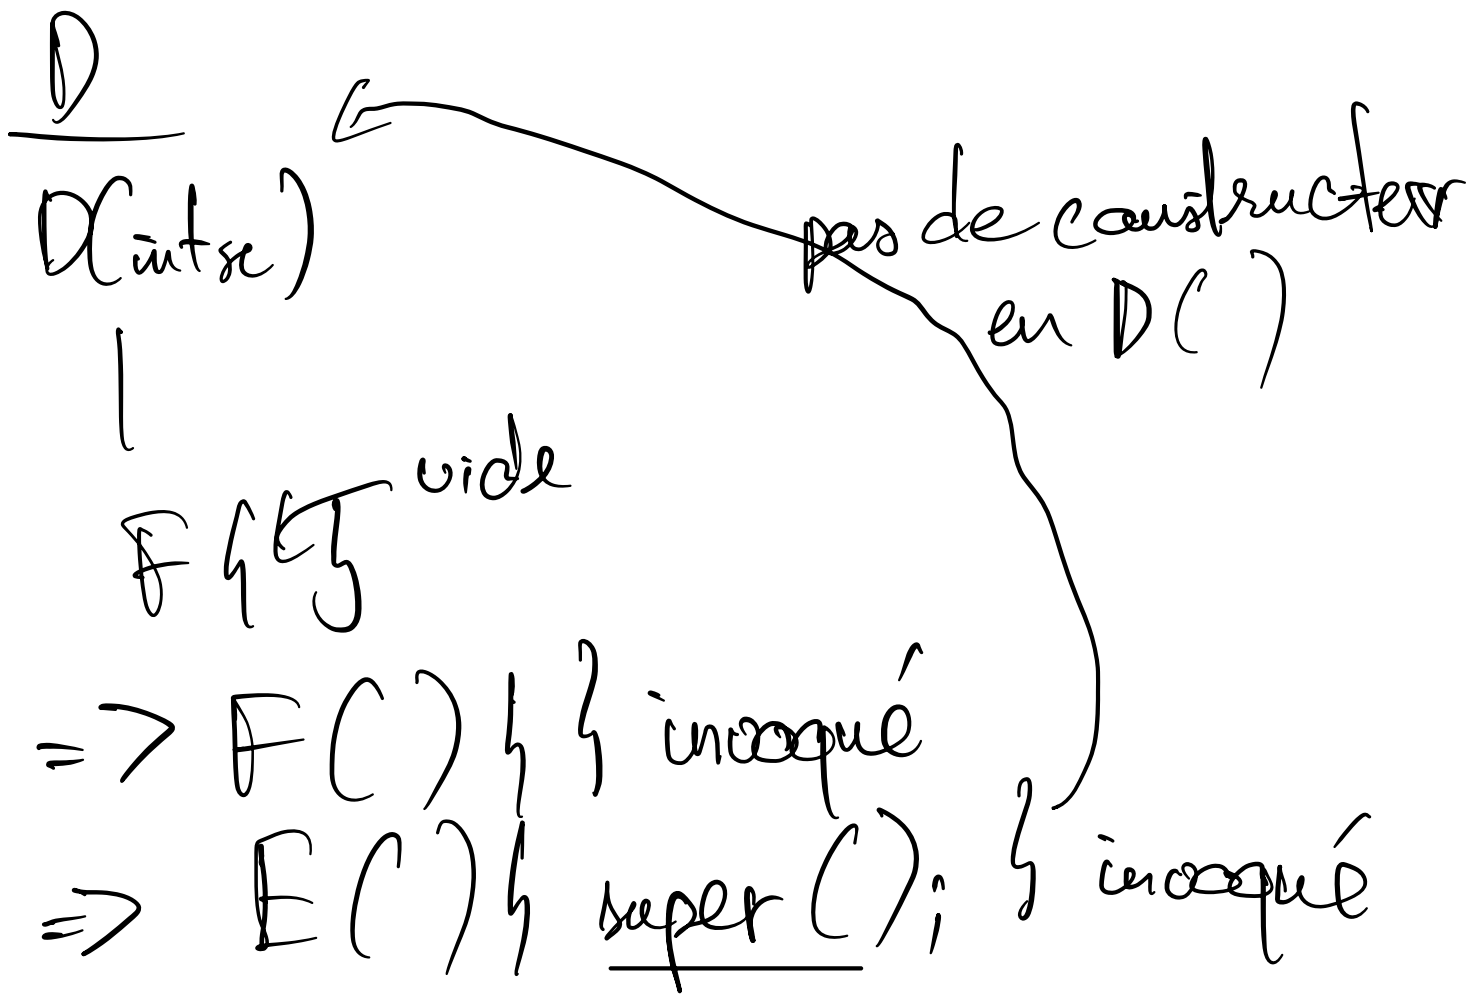 D
D(int x)
pas de constructeur
en D()
vide
F { }
=> F() { } invoqué
=> E() { super(); } invoqué